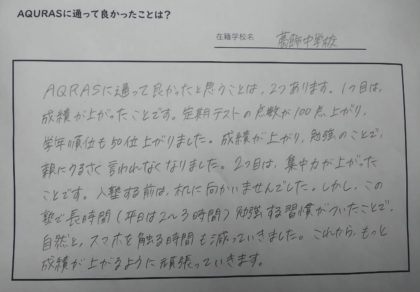 AQURASに通って良かったことは?
在籍学校名
中学校
AQRASに通って良かったと思うことは、2つあります。1つ目は、
成績が上がったことです。定期テストの点数が100点上がり、
学年順位も50位上がりました。成績が上がり、勉強のことで
親にうるさく言われなくなりました。2つ目は、集中力が上がった
ことです。入塾する前は、机に向かいませんでした。しかし、この
塾で長時間(平日は2～3時間)勉強する習慣がついたことで、
自然と、スマホを触る時間も減っていきました。これから、もっと
成績が上がるように頑張っていきます。